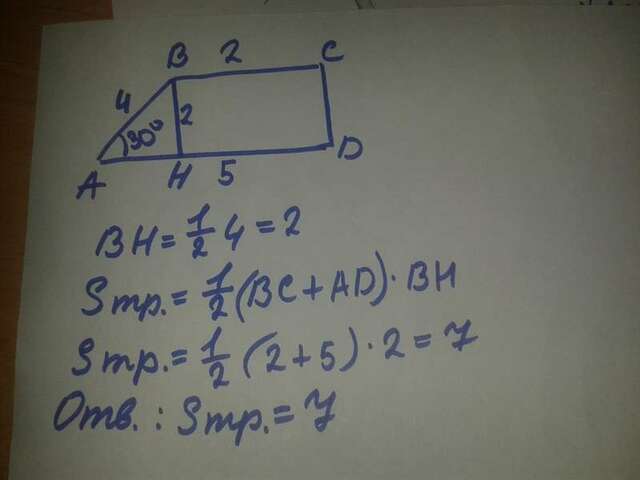 B 2 C
4 30° 2
A H 5 D
BH = 1/2 4 = 2
Sтр. = 1/2 (BC + AD) · BH
Sтр. = 1/2 (2 + 5) · 2 = 7
Отв.: Sтр. = 7